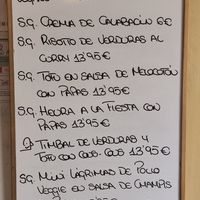 S.G. CREMA DE CALABACÍN 6€
S.G. RISOTTO DE VERDURAS AL
CURRY 13'95€
S.G. TOFU EN SALSA DE MELOCOTÓN
CON PAPAS 13'95€
S.G. HEURA A LA FIESTA CON
PAPAS 13'95€
TIMBAL DE VERDURAS Y
TOFU CON COUS-COUS 13'95€
S.G. MINI LÁGRIMAS DE POLLO
VEGGIE EN SALSA DE CHAMPIS